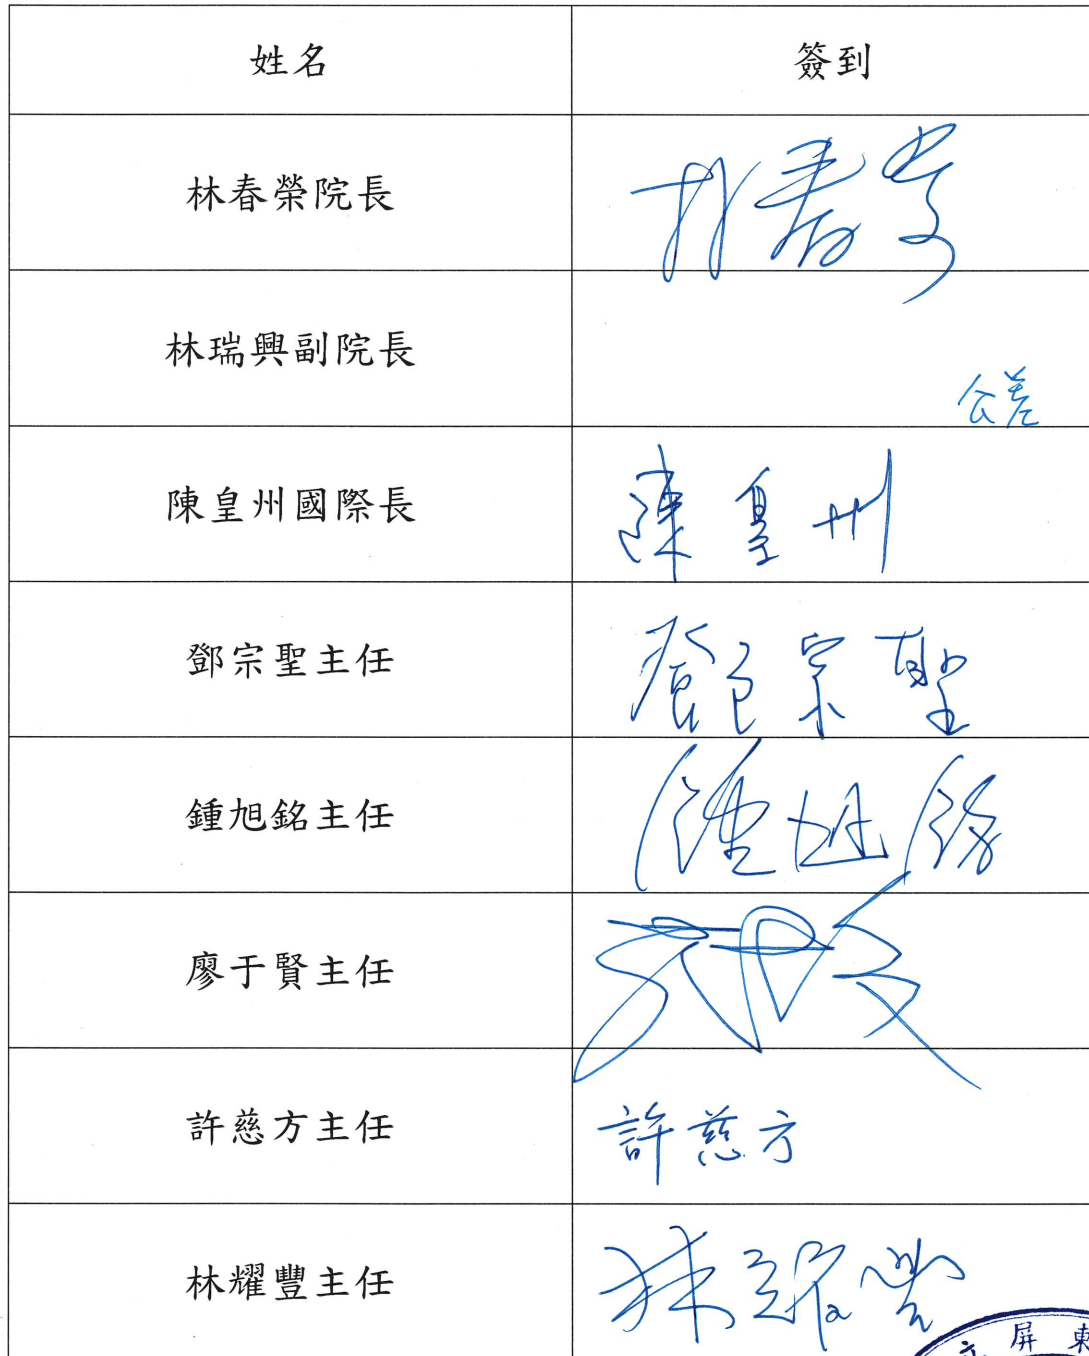 姓名 簽到
林春榮院長 林春榮
林瑞興副院長 公差
陳皇州國際長 陳皇州
鄧宗聖主任 鄧宗聖
鍾旭銘主任 鍾旭銘
廖于賢主任
許慈方主任 許慈方
林耀豐主任 林耀豐
屏東